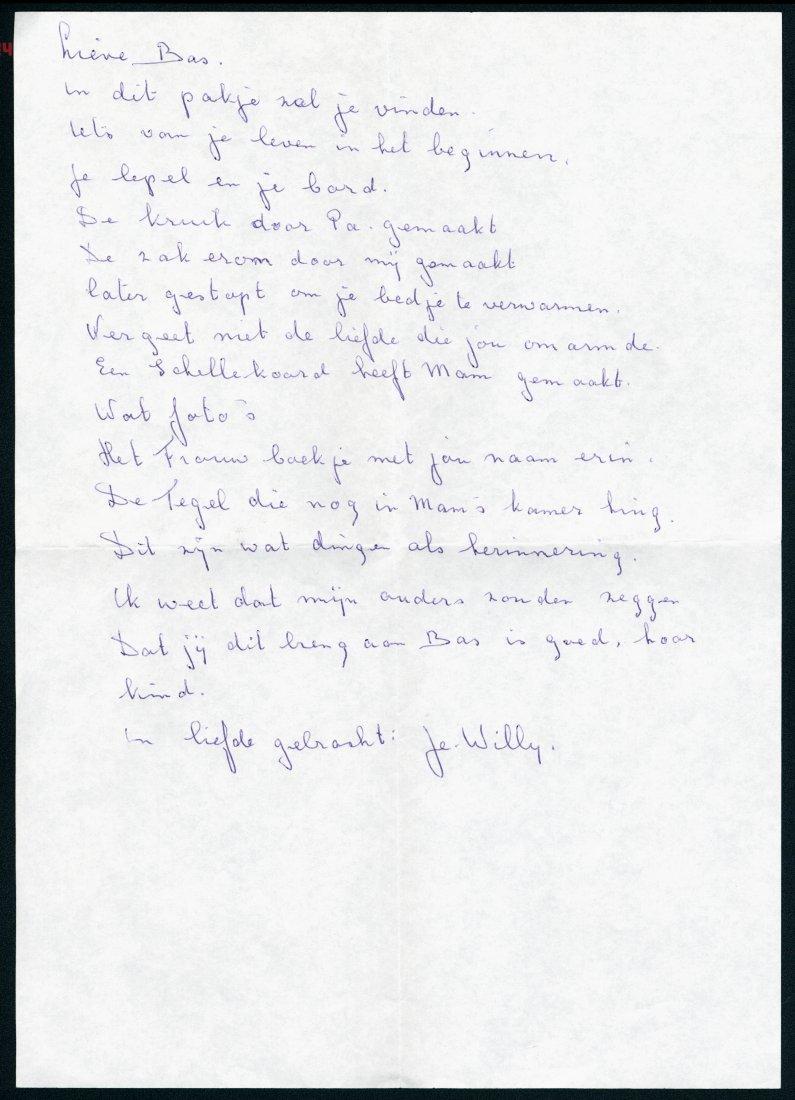 Lieve Bas.
In dit pakje zal je vinden.
Iets van je leven in het beginnen.
Je lepel en je bord.
De kruik door Pa. gemaakt
De zak erom door mij gemaakt
later gestopt om je bedje te verwarmen.
Vergeet niet de liefde die jou omarmde.
Een Schellekoord heeft Mam gemaakt.
Wat foto's
Het Trouw boekje met jou naam erin.
De Tegel die nog in Mam's kamer hing.
Dit zijn wat dingen als herinnering.
Ik weet dat mijn ouders zouden zeggen
Dat jij dit breng aan Bas is goed, hoor
kind.
In liefde gebracht: Je Willy.